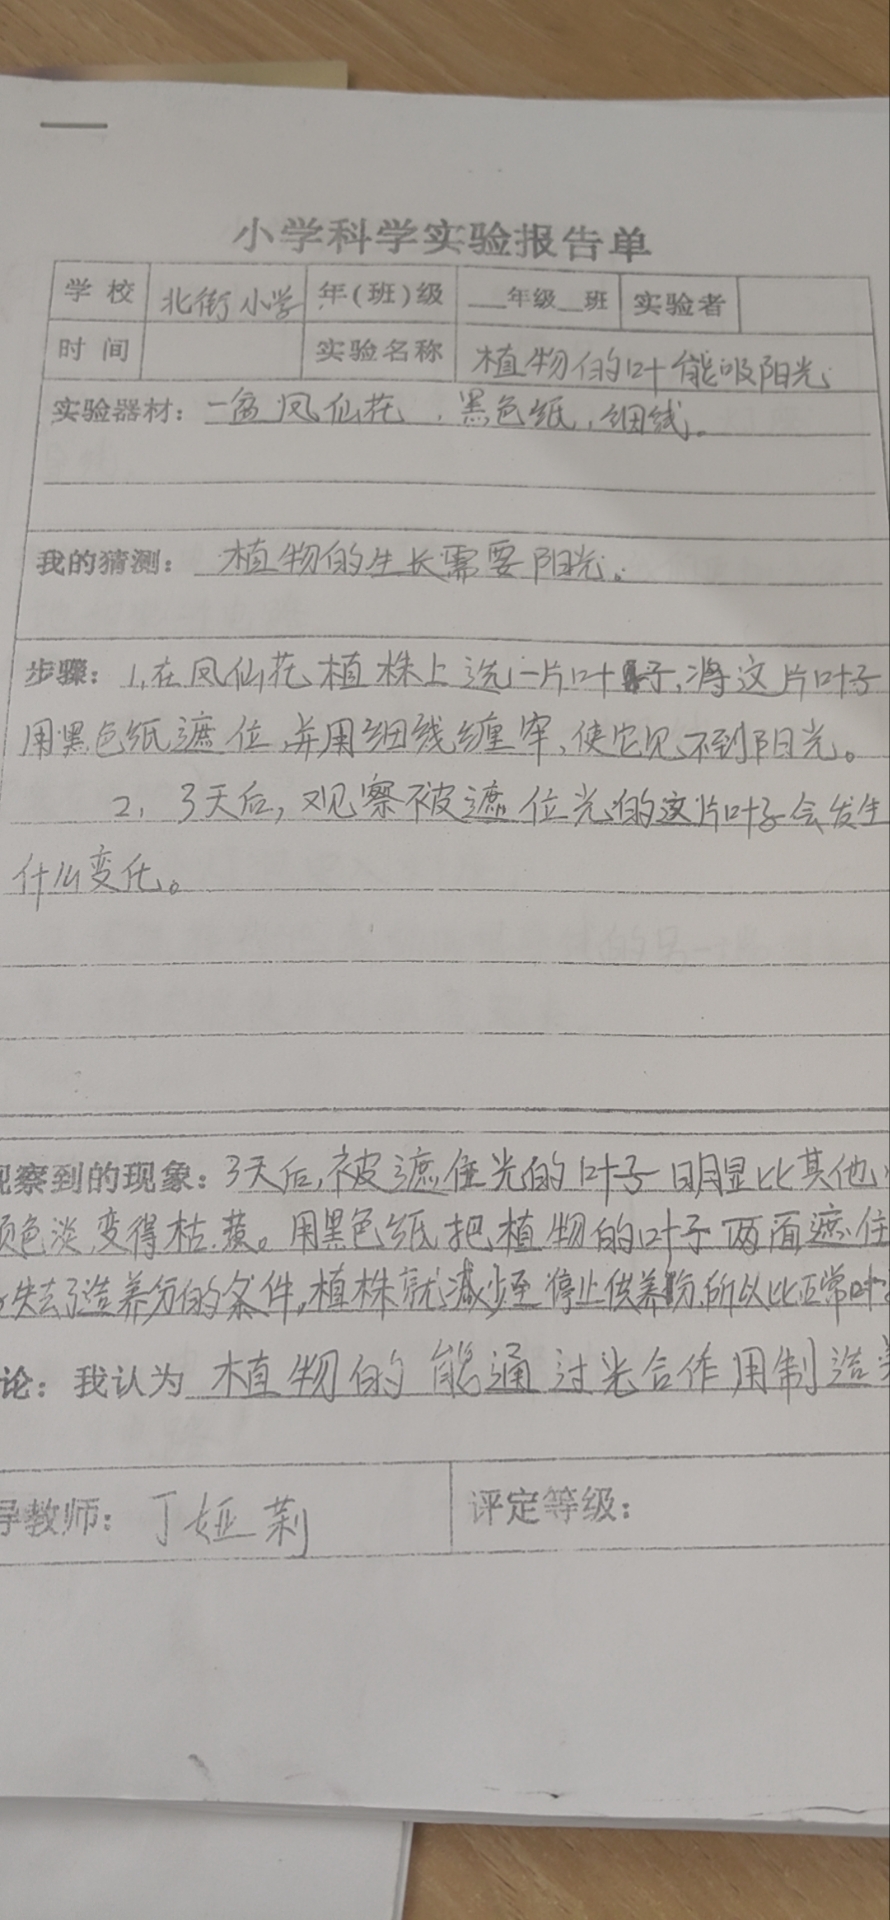 小学科学实验报告单
学校 北街小学 年(班)级 __年级__班 实验者
时间 实验名称 植物的叶能吸阳光
实验器材：一盆凤仙花、黑色纸，细线。
我的猜测：植物的生长需要阳光。
步骤：1、在凤仙花植株上选一片叶子，将这片叶子
用黑色纸遮位，并用细线缠牢，使它见不到阳光。
2、3天后，观察被遮位光的这片叶子会发生
什么变化。
观察到的现象：3天后，被遮住光的叶子明显比其他
颜色淡，变得枯黄。用黑色纸把植物的叶子两面遮住
失去了造养分的条件，植株就减少至停止供养份，所以比正常叶
论：我认为 植物的能通过光合作用制造
导教师：丁娅莉 评定等级：